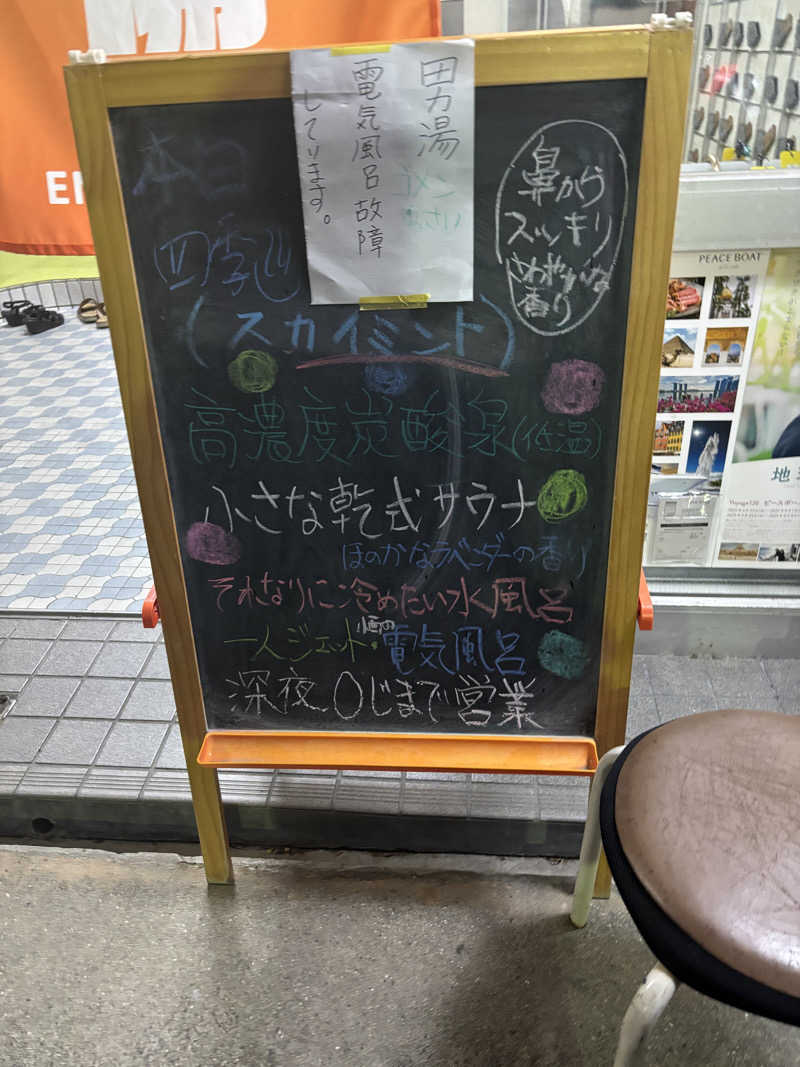 男湯
ゴメン
なさい
電気風呂故障
しています。
鼻から
スッキリ
さわやかな
香り
本日
四季
(スカイミント)
高濃度炭酸泉(低温)
小さな乾式サウナ
ほのかなラベンダーの香り
それなりに冷めたい水風呂
一人ジェット・電気風呂
深夜0じまで営業
PEACE BOAT
地
Voyage120 ピースボート